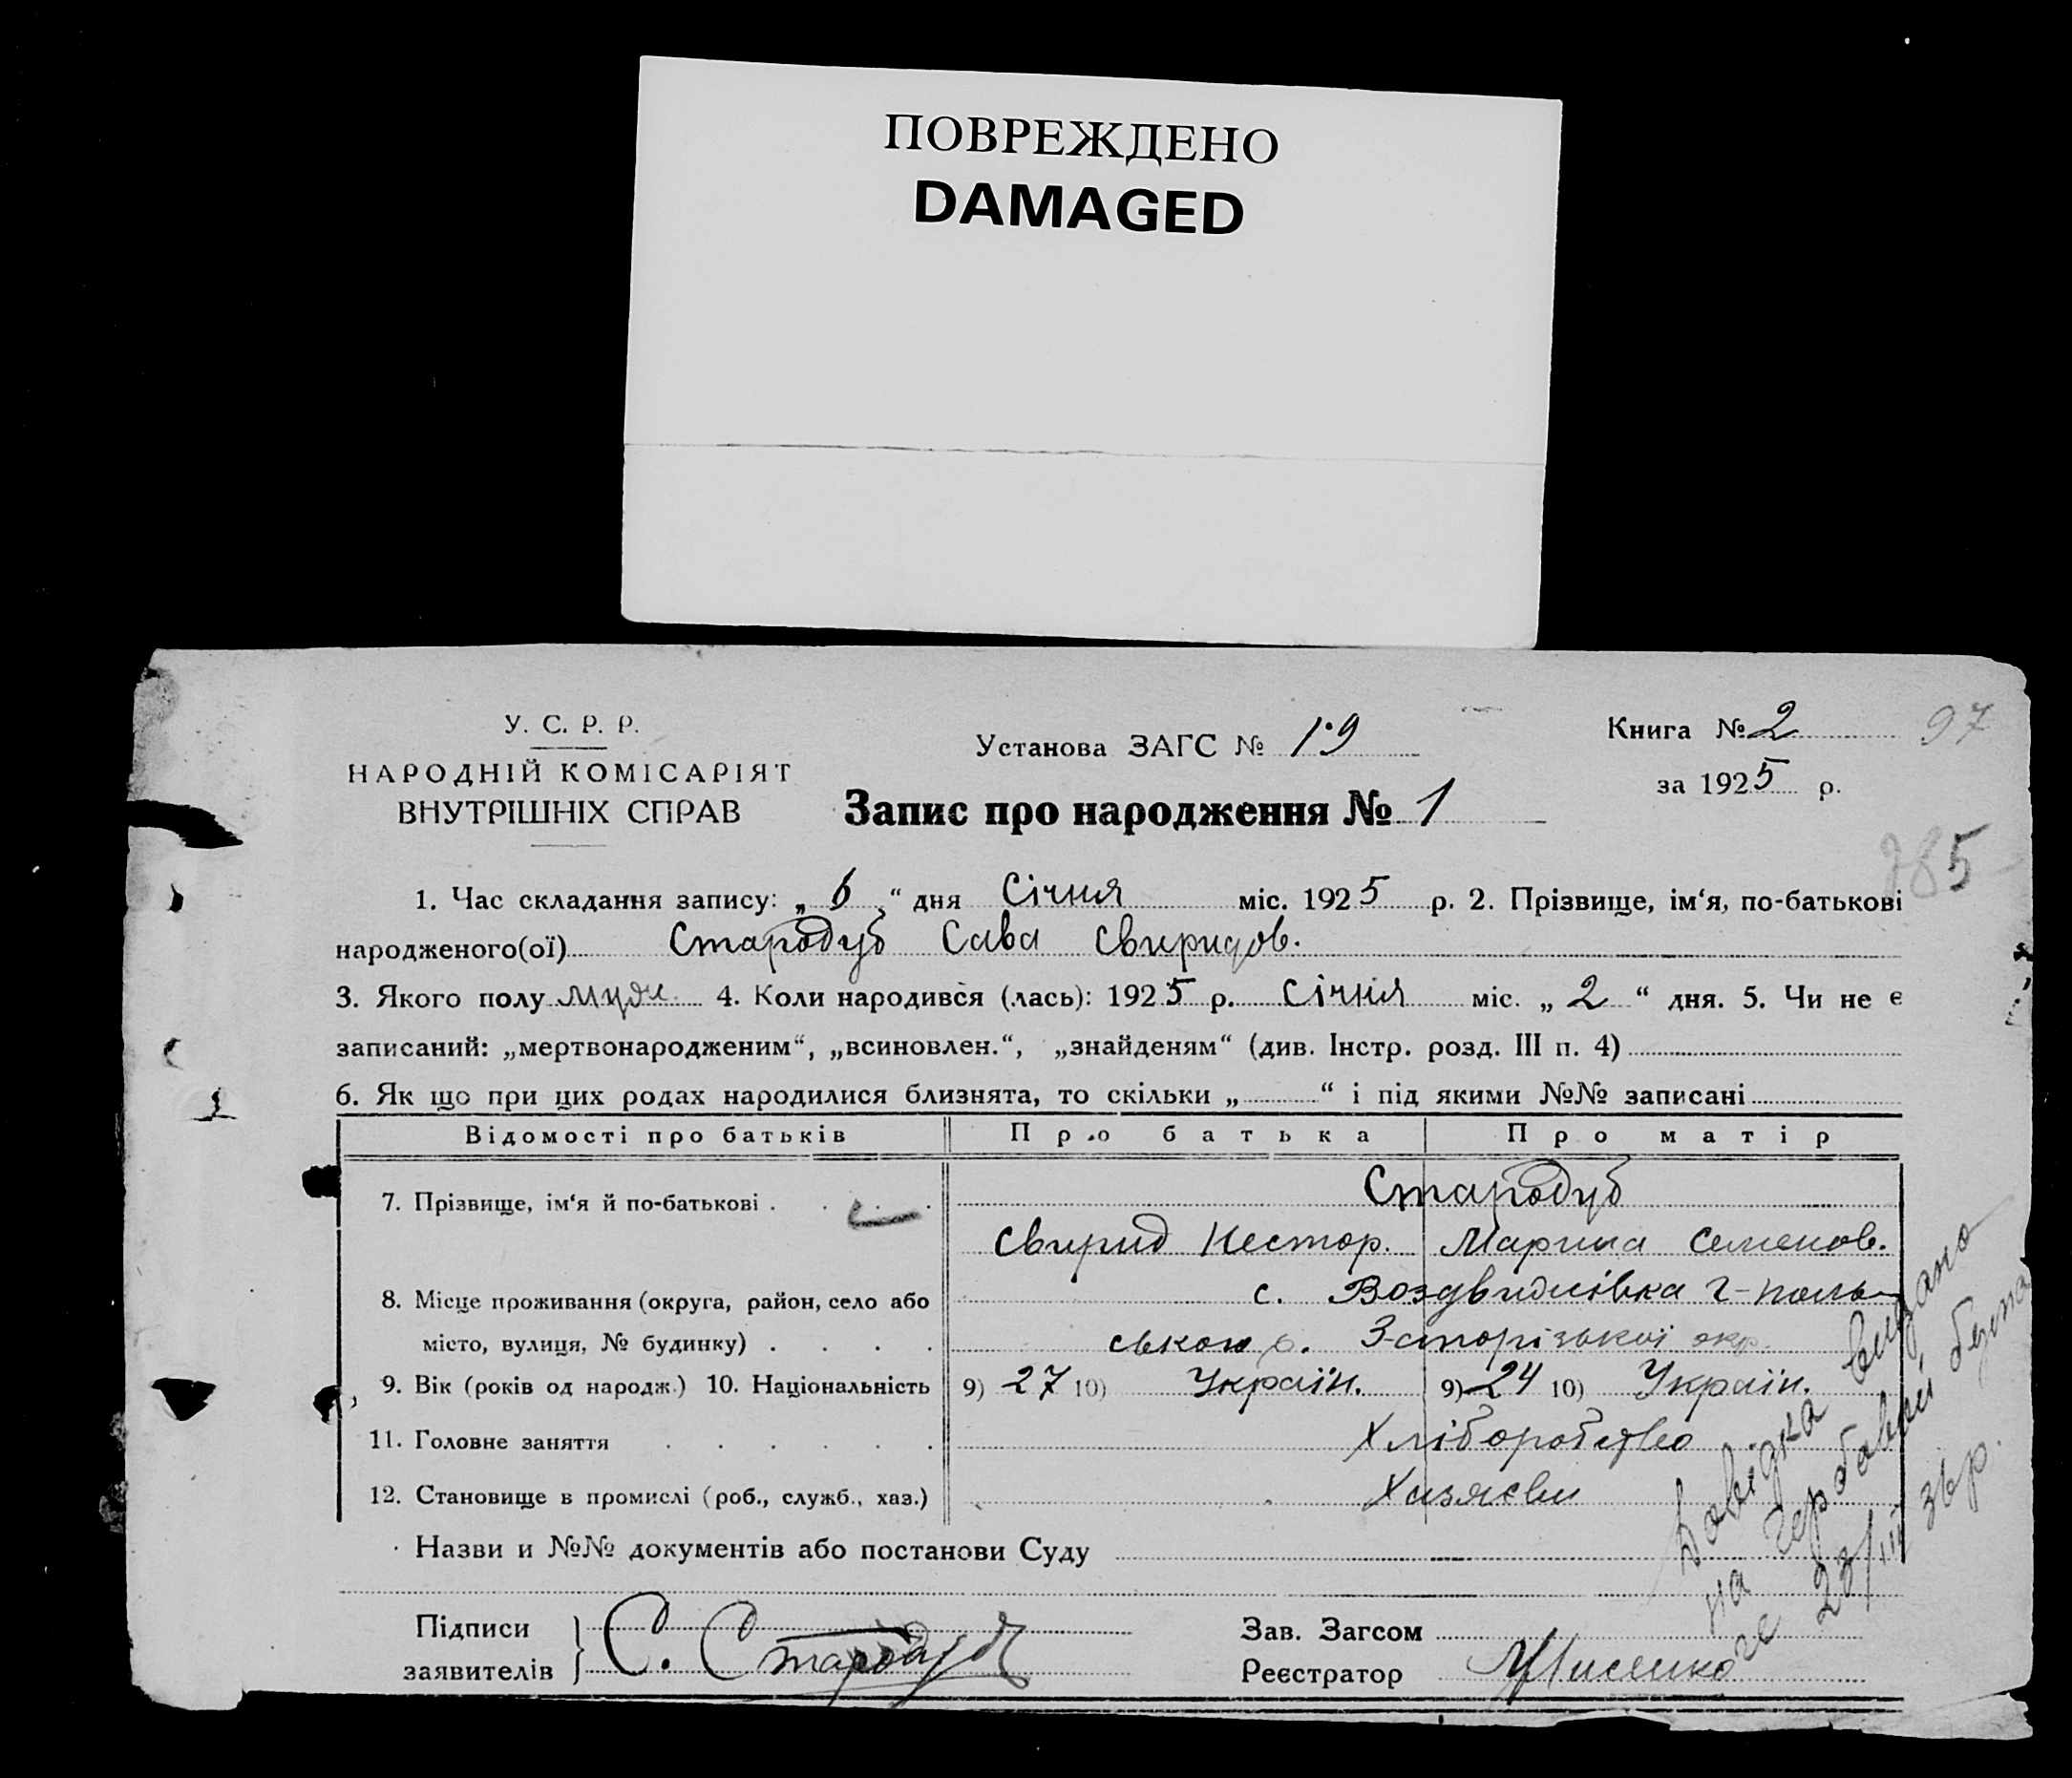 ПОВРЕЖДЕНО
DAMAGED
У. С. Р. Р.
НАРОДНІЙ КОМІСАРІЯТ
ВНУТРІШНІХ СПРАВ
Установа ЗАГС № 19
Книга № 2
97
за 1925 р.
Запис про народження № 1
285
1. Час складання запису: „ 6 “ дня Січня міс. 1925 р. 2. Прізвище, ім‘я, по-батькові
народженого(ої) Стародуб Сава Свиридов.
3. Якого полу муж. 4. Коли народився (лась): 1925 р. Січня міс. „ 2 “ дня. 5. Чи не є
записаний: „мертвонародженим“, „всиновлен.“, „знайденям“ (див. Інстр. розд. III п. 4)
6. Як що при цих родах народилися близнята, то скільки „ “ і під якими №№ записані
Відомості про батьків Про батька Про матір
7. Прізвище, ім‘я й по-батькові . . . . Стародуб
Свирид Нестор. Марина Семенов.
8. Місце проживання (округа, район, село або с. Воздвижівка Г-поль-
місто, вулиця, № будинку) . . . . ського р. З-порізької окр.
9. Вік (років од народж.) 10. Національність 9) 27 10) Україн. 9) 24 10) Україн.
11. Головне заняття . . . . . . Хліборобство
12. Становище в промислі (роб., служб., хаз.) Хазяєви
Назви и №№ документів або постанови Суду
Підписи
заявителів } С. Стародуб
Зав. Загсом
Реєстратор
Довідка видано
на
23/III 3 р.